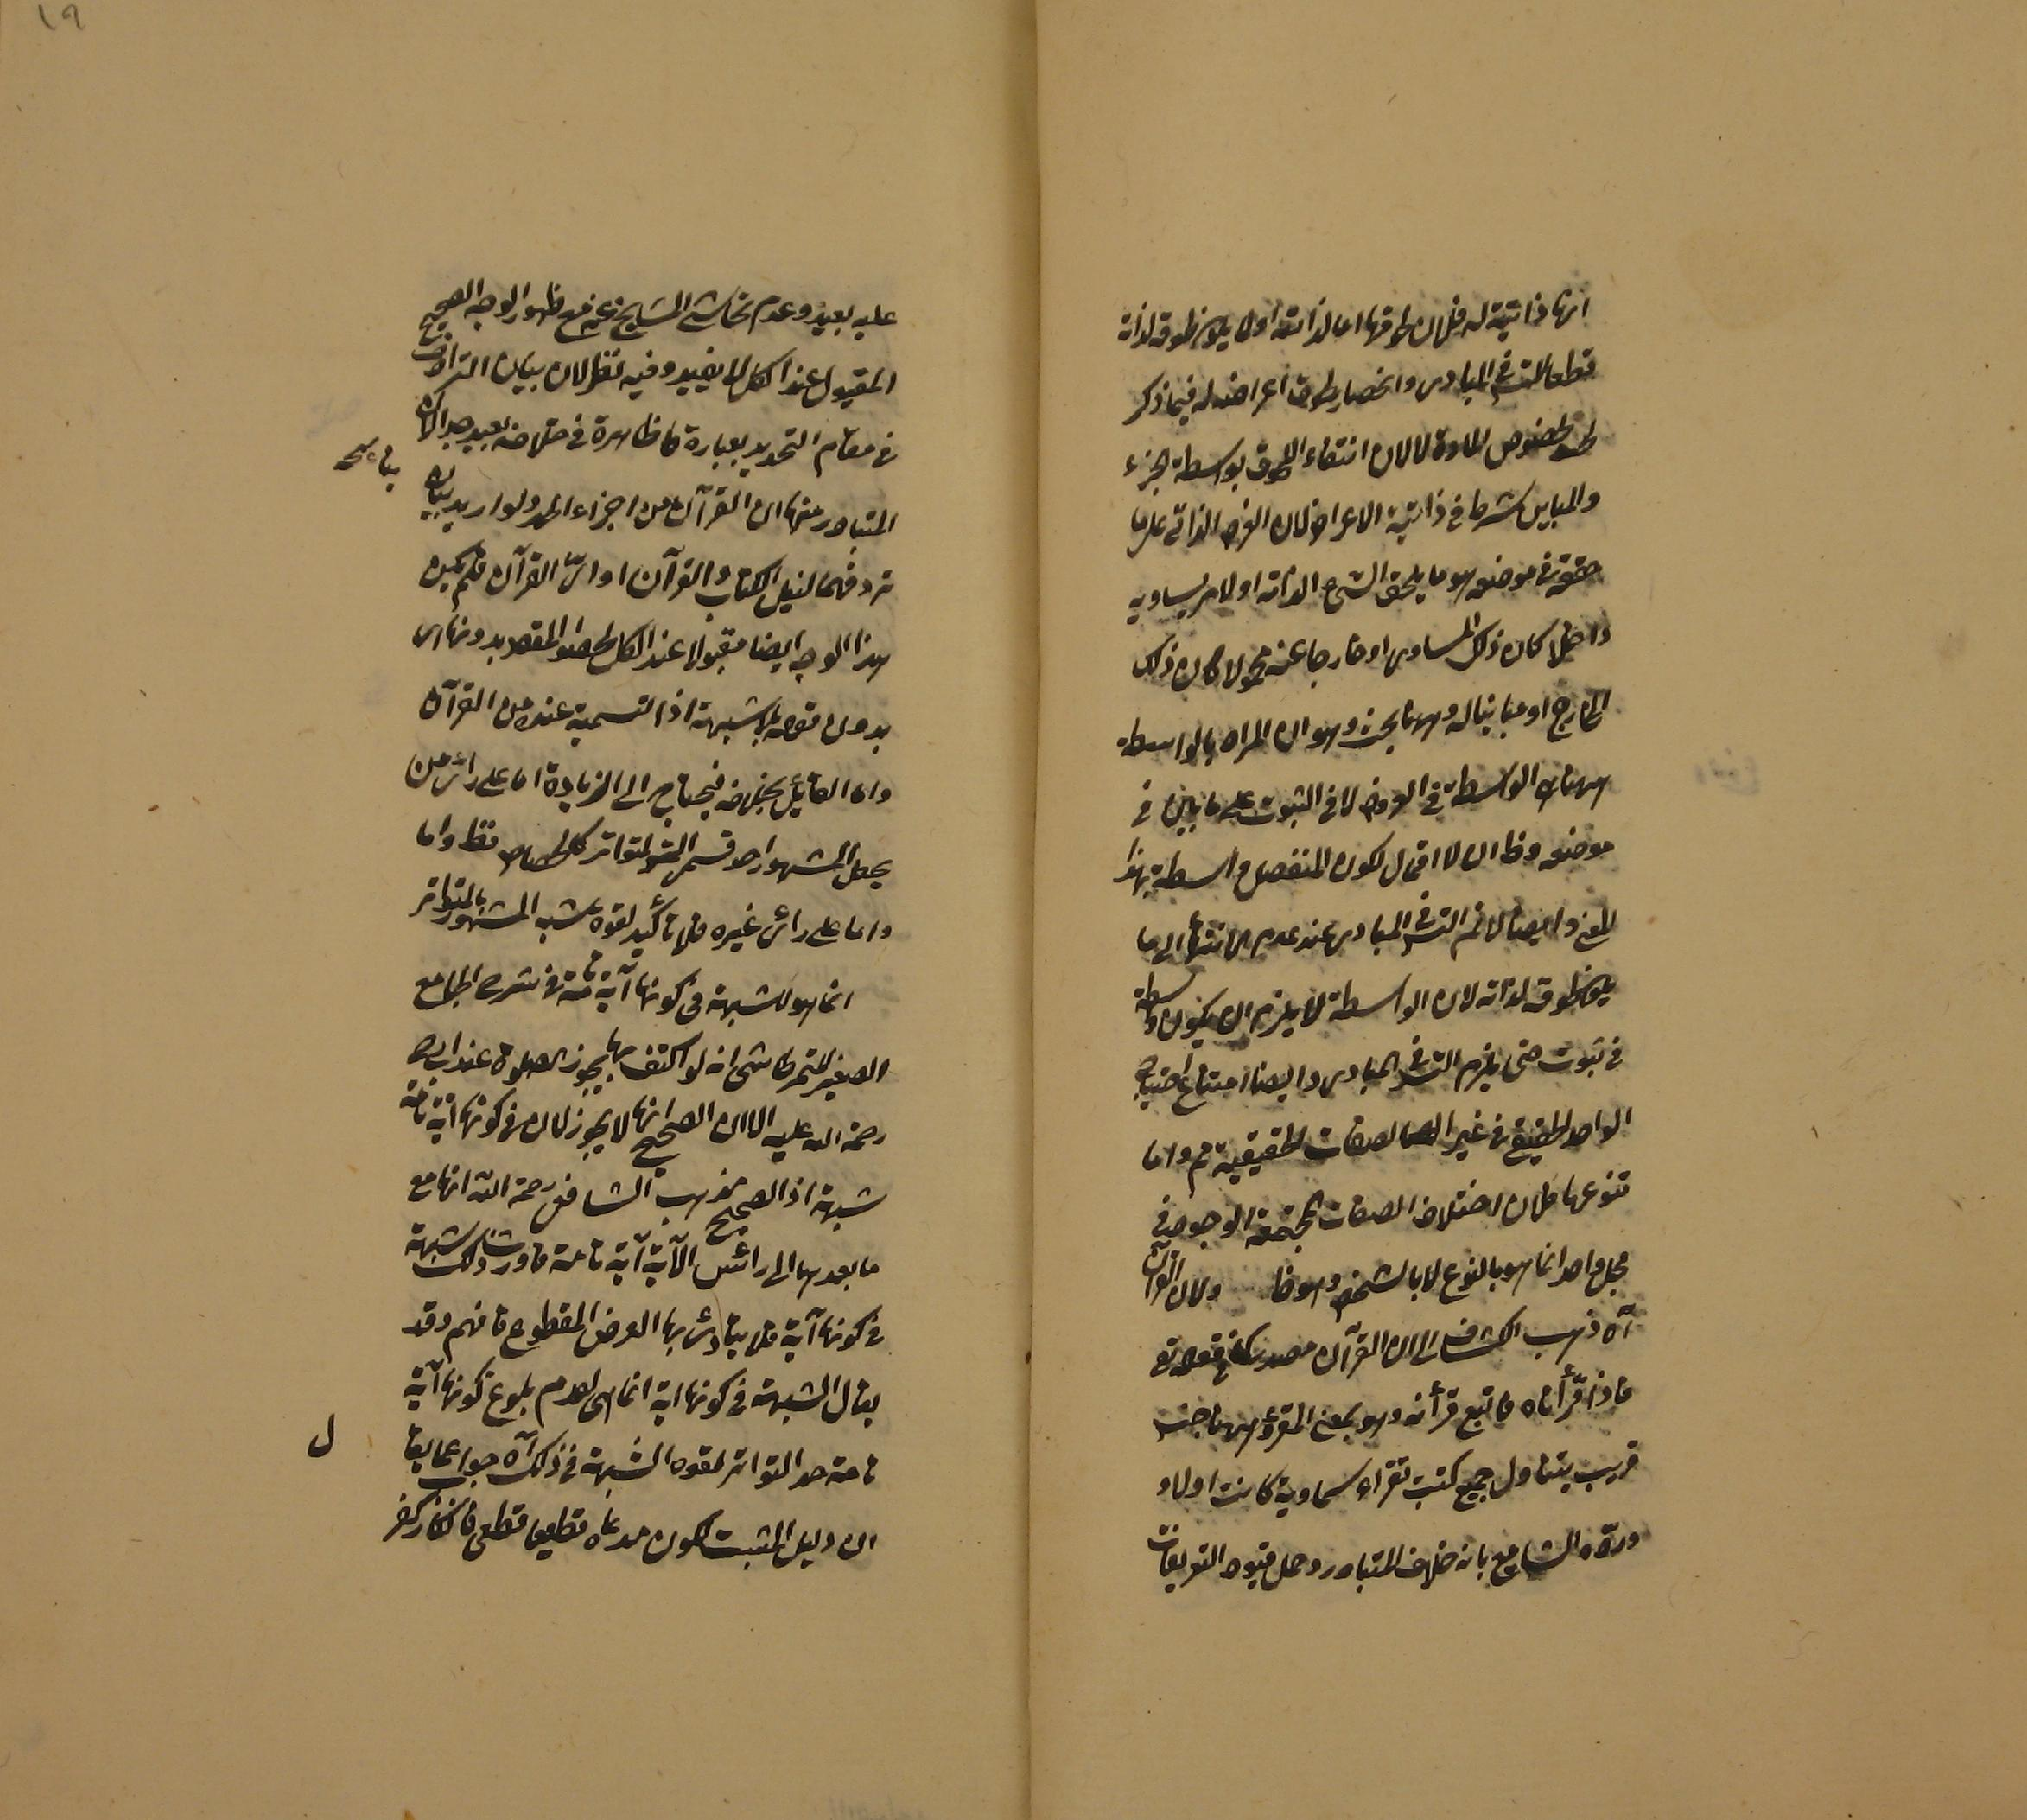 انها ذاتية له فلان لحوقها اما لذاته اولا
قطعا للتس في المبادى وانحصار لحوق اعراضه له فيما ذكر
لخصوص المادة لا لان انتفاء اللحوق بواسطة الجزء
والمباين شرط فى ذاتية الاعراض لان العرض الذاتى على ما
حقق فى موضعه هو ما يلحق الشئ لذاته او لامر يساويه
داخلا كان ذلك المساوى او خارجا عنه محمولا كان ذلك
الخارج او مباينا له وههنا بحث وهو ان المراد بالواسطة
ههنا هو الواسطة فى العروض لا فى الثبوت على ما بين فى
موضعه وظ ان لا احتمال لكون المنفصل واسطة بهذا
المعنى وايضا لا نم التس فى المبادى عند عدم الانتهاء الى ما
لحوقه لذاته لان الواسطة لا يلزم ان يكون واسطة
فى ثبوت حتى يلزم التس فى المبادى وايضا امتناع احتياج
الواحد الحقيقى فى غير الصفات الحقيقية ثم واما
تنوعها فلان اختلاف الصفات المجتمعة الوجود فى
محل واحد انما هو بالنوع لا بالشخص وهو ظ ولان القرآن
آه ذهب الكشاف الى ان القرآن مصدر كما فى قوله تع
فاذا قرأناه فاتبع قرأنه وهو بمعنى المقرؤ ههنا جنس
قريب يتناول جميع كتب تقراء سماوية كانت اولا و
وردّه الشارح بانه خلاف المتبادر وحمل قيود التعريفات
١٩
عليه بعيد وعدم تحاشى المشايخ عنه مع ظهور الوجه الصحيح
المقبول عند الكل لا يفيد وفيه نظر لان بيان الترادف
فى مقام التحديد بعبارة ظاهرة فى خلافه بعيد جدا لان
المتبادر منها ان القرآن من اجزاء الحد ولو اريد بيان
ترادفهما لقيل الكتاب والقرآن او اىّ القرآن فلم يكن
هذا الوجه ايضا مقبولا عند الكل لحصول المقصود بدونها اى
بدون قوله بلا شبهة اذ التسمية عنده من القرآن
واما القائل بخلافه فيحتاج الى الزيادة اما على رأى من
يجعل المشهور احد قسمى المتواتر كالجصاص فظ واما
واما على رائ غيره فلانه تأكيد لقوة شبه المشهور بالمتواتر
انما هو للشبهة فى كونها آية تامة فى شرح الجامع
الصغير للتمرتاشى انه لو اكتفى بها يجوز الصلوة عند ابى ح
رحمة الله عليه الا ان الصحيح انها لا يجوز لان فى كونها آية تامة
شبهة اذ الصحيح مذهب الشافعى رحمة الله انها مع
ما بعدها الى رائس الآية آية تامة فاورث ذلك شبهة
فى كونها آية فلا يتأدى بها الفرض المقطوع فافهم وقد
يقال الشبهة فى كونها اية انما هى لعدم بلوغ كونها آية
تامة حد التواتر لقوة الشبهة فى ذلك آه جواب عما يقا
ل
ان دليل المثبت لكون مدعاه قطعيا قطعى فانكاره كفر